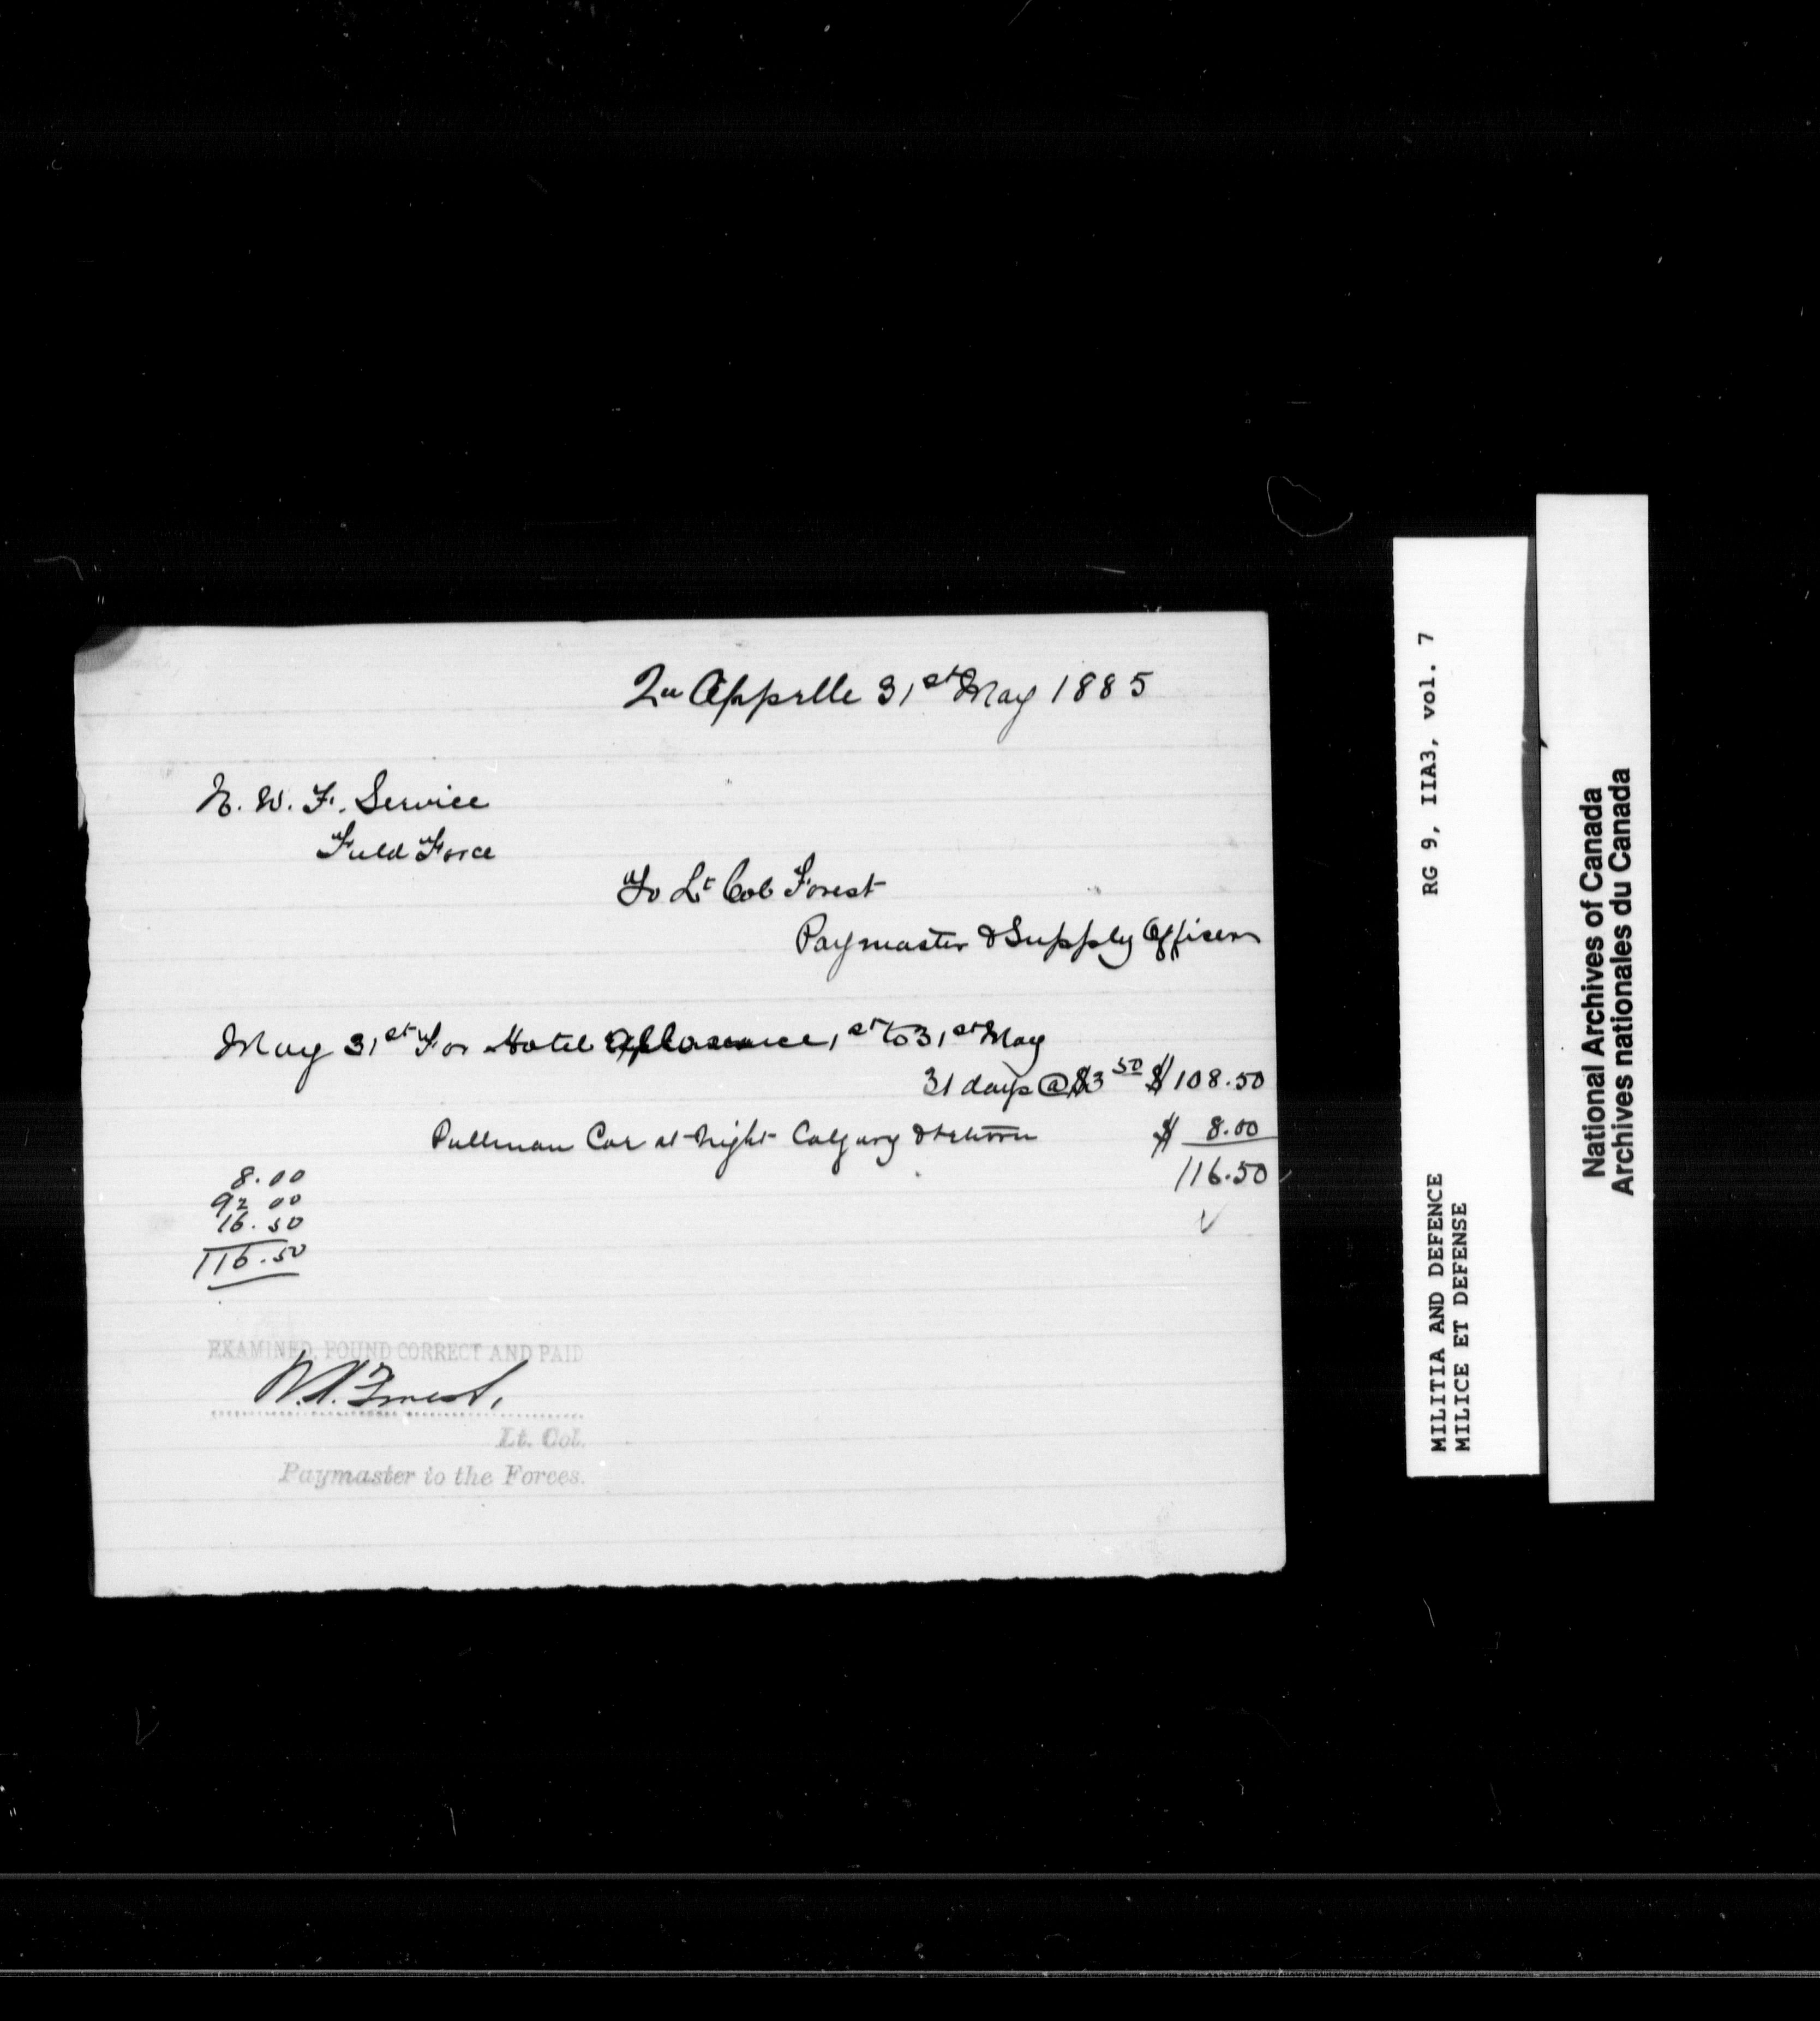 Qu Appelle 31st May 1885
N. W. F. Service
Field Force
To Lt Col Forest
Paymaster & Supply Officer
May 31st For Hotel Allowance 1st to 31st May
31 days @ $3 50 $108.50
Pullman Car at night Calgary & return $ 8.00
116.50
8.00
92 00
16.50
116.50
EXAMINED, FOUND CORRECT AND PAID
W.H. Forrest,
Lt. Col.
Paymaster to the Forces.
RG 9, IIA3, vol. 7
MILITIA AND DEFENCE
MILICE ET DEFENSE
National Archives of Canada
Archives nationales du Canada